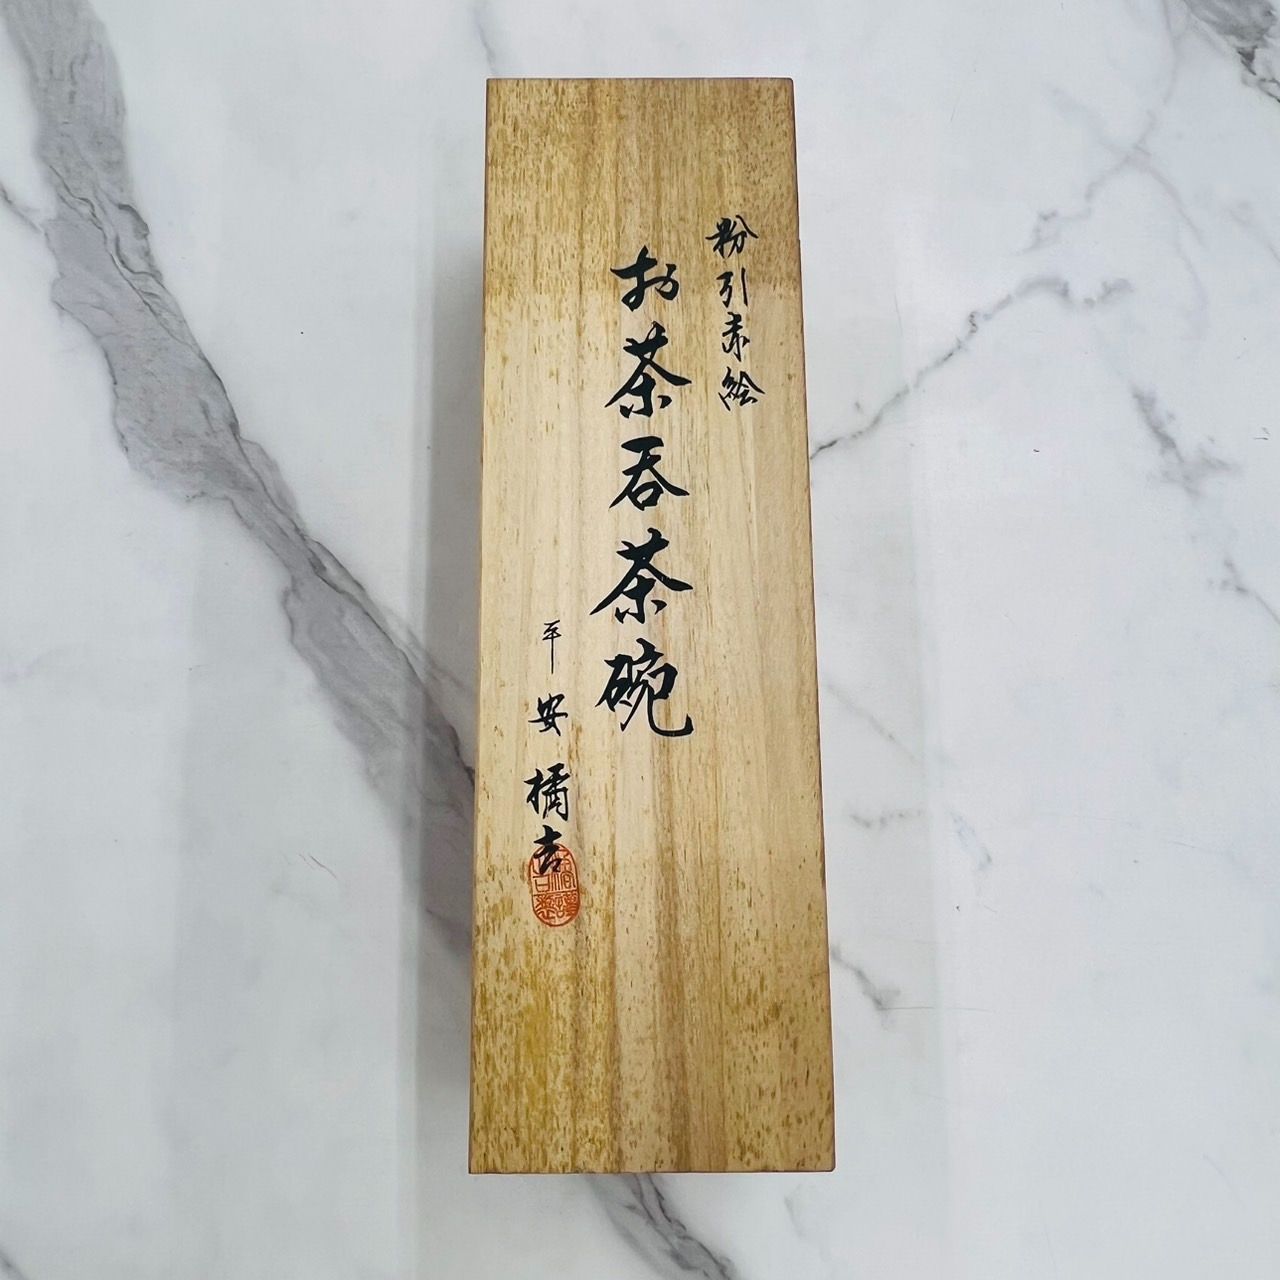 粉引赤絵
お茶呑茶碗
平安 橘吉